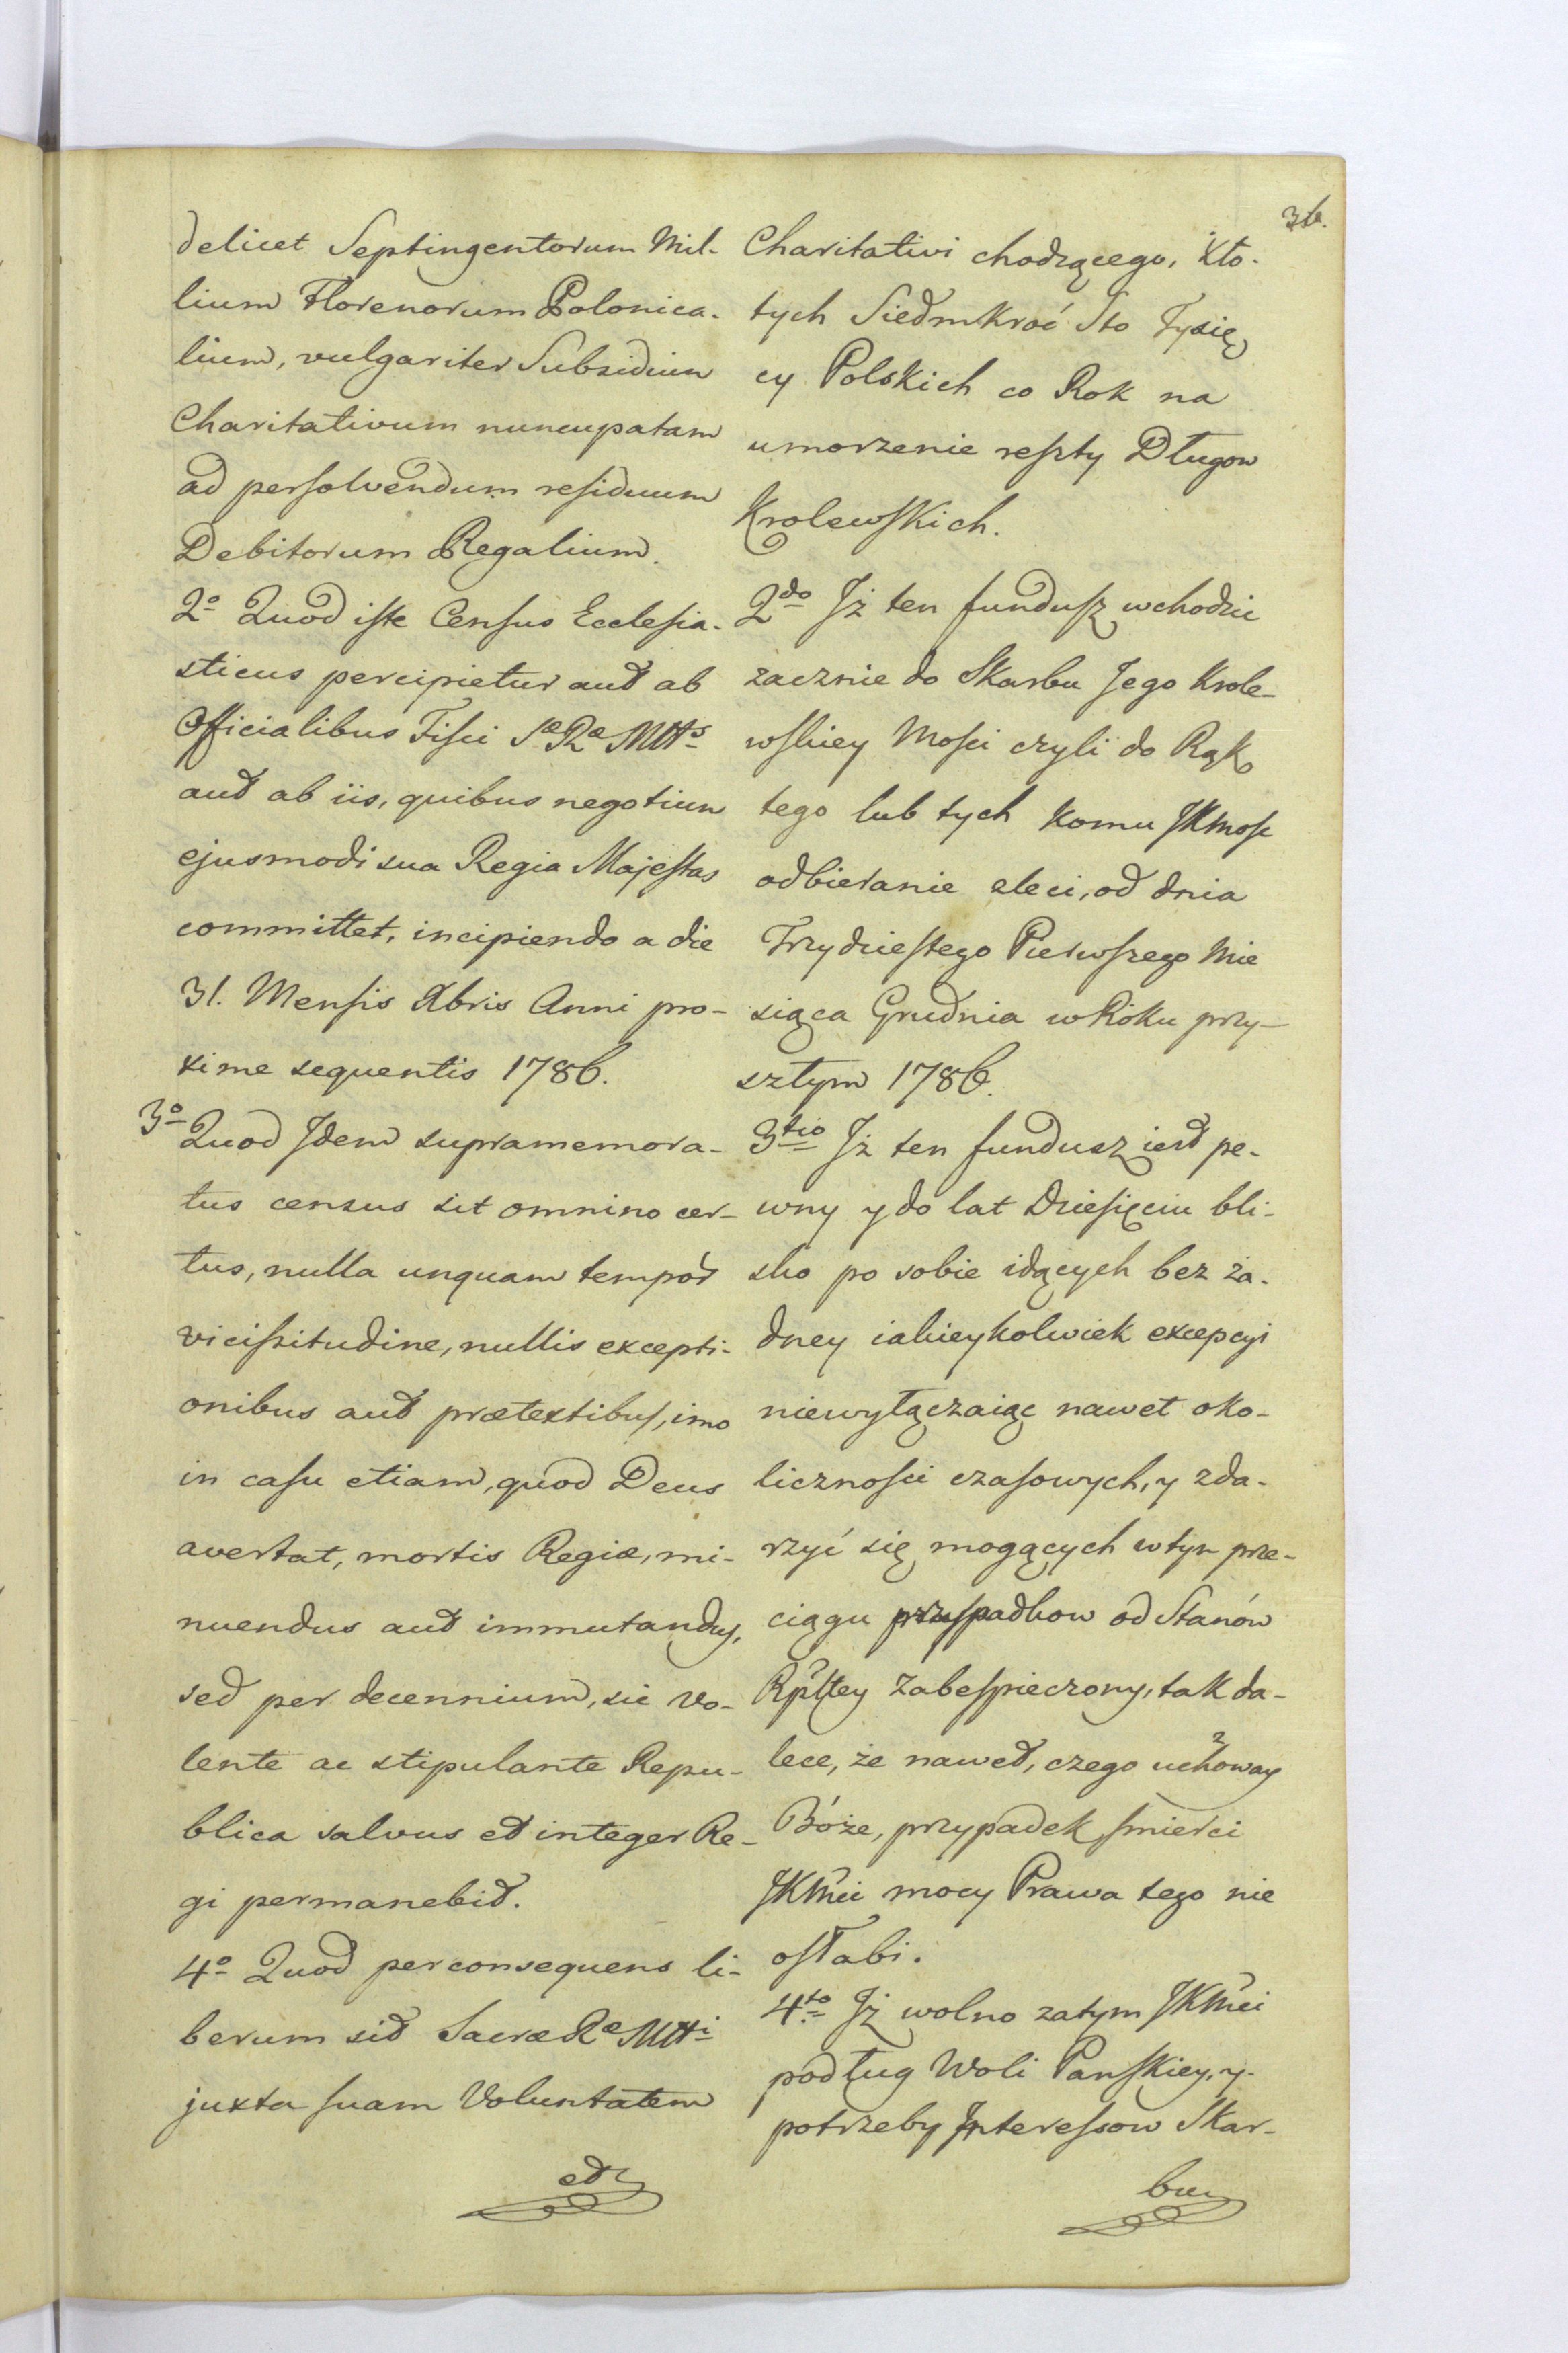 36.
delicet Septingentorum Mil-
lium Florenorum Polonica-
lium, vulgariter Subsidium
Charitativum nuncupatam
ad persolvendum residuum
Debitorum Regalium.
2o Quod iste Census Ecclesia-
sticus percipietur aut ab
Officialibus Fisci Sæ Ræ Mtts
aut ab iis, quibus negotium
ejusmodi sua Regia Majestas
committet, incipiendo a die
31. Mensis Xbris Anni pro-
xime sequentis 1786.
3o Quod Idem supramemora-
tus census sit omnino cer-
tus, nulla unquam tempor
vicissitudine, nullis excepti-
onibus aut prætextibus, imo
in casu etiam, quod Deus
avertat, mortis Regiæ, mi-
nuendus aut immutandus,
sed per decennium, sic vo-
lente ac stipulante Repu-
blica salvus et integer Re-
gi permanebit.
4o Quod per consequens li-
berum sit Sacræ Ræ Mtti
juxta suam Voluntatem
et
Charitativi chodzącego, Zło-
tych Siedmkroć Sto Tysię
cy Polskich co Rok na
umorzenie reszty Długow
Krolewskich.
2do Iż ten fundusz wchodzić
zacznie do Skarbu Jego Krole-
wskiey Mosci czyli do Rąk
tego lub tych komu JKMosc
odbieranie zleci, od dnia
Trzydziestego Pierwszego Mie
siąca Grudnia w Roku przy-
szłym 1786.
3tio Iż ten fundusz iest pe-
wny y do lat Dziesięciu bli-
sko po sobie idących bez ża-
dney iakieykolwiek excepcyi
niewyłączaiąc nawet oko-
licznosci czasowych, y zda-
rzyć się mogących w tym prze-
ciągu przypadkow od Stanów
Rplttey zabespieczony, tak da-
lece, że nawet, czego uchoway
Bóże, przypadek smierci
JKMci mocy Prawa tego nie
osłabi.
4to Iż wolno zatym JKMci
podług Woli Panskiey, y
potrzeby Interessow Skar-
bu